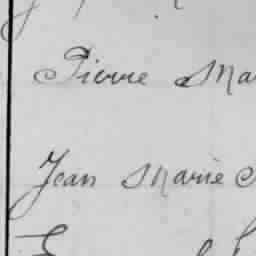 Pierre Ma
Jean Marie